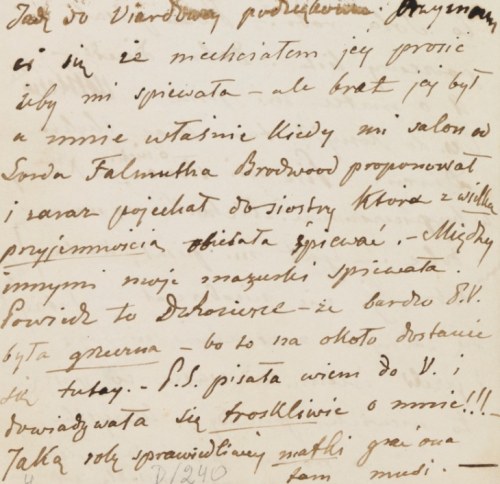 Jadę do Viardowej podziękować. Przyznam
ci się że niechciałem jej prosić
żeby mi śpiewała – ale brat jej był
u mnie właśnie kiedy mi salon
Lorda Falmutha Brodwood proponował
i zaraz pojechał do siostry która z wielką
przyjemnością obiecała śpiewać. – Między
innymi moje mazurki śpiewała.
Powiedz to – że bardzo P.V.
była grzeczna – bo to na około dostanie
się tutaj. – P.S. pisała wiem do V. i
dowiadywała się troskliwie o mnie!!!
Jaką rolę sprawiedliwej matki grać ona
tam musi. —
D/240